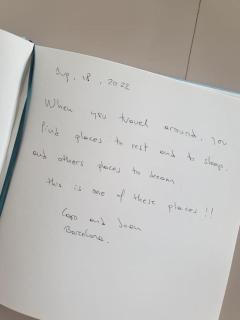 Aug, 18, 2022
When you travel around, you
find places to rest and to sleep,
and others places to dream
this is one of these places!!
and Joan
Barcelona.